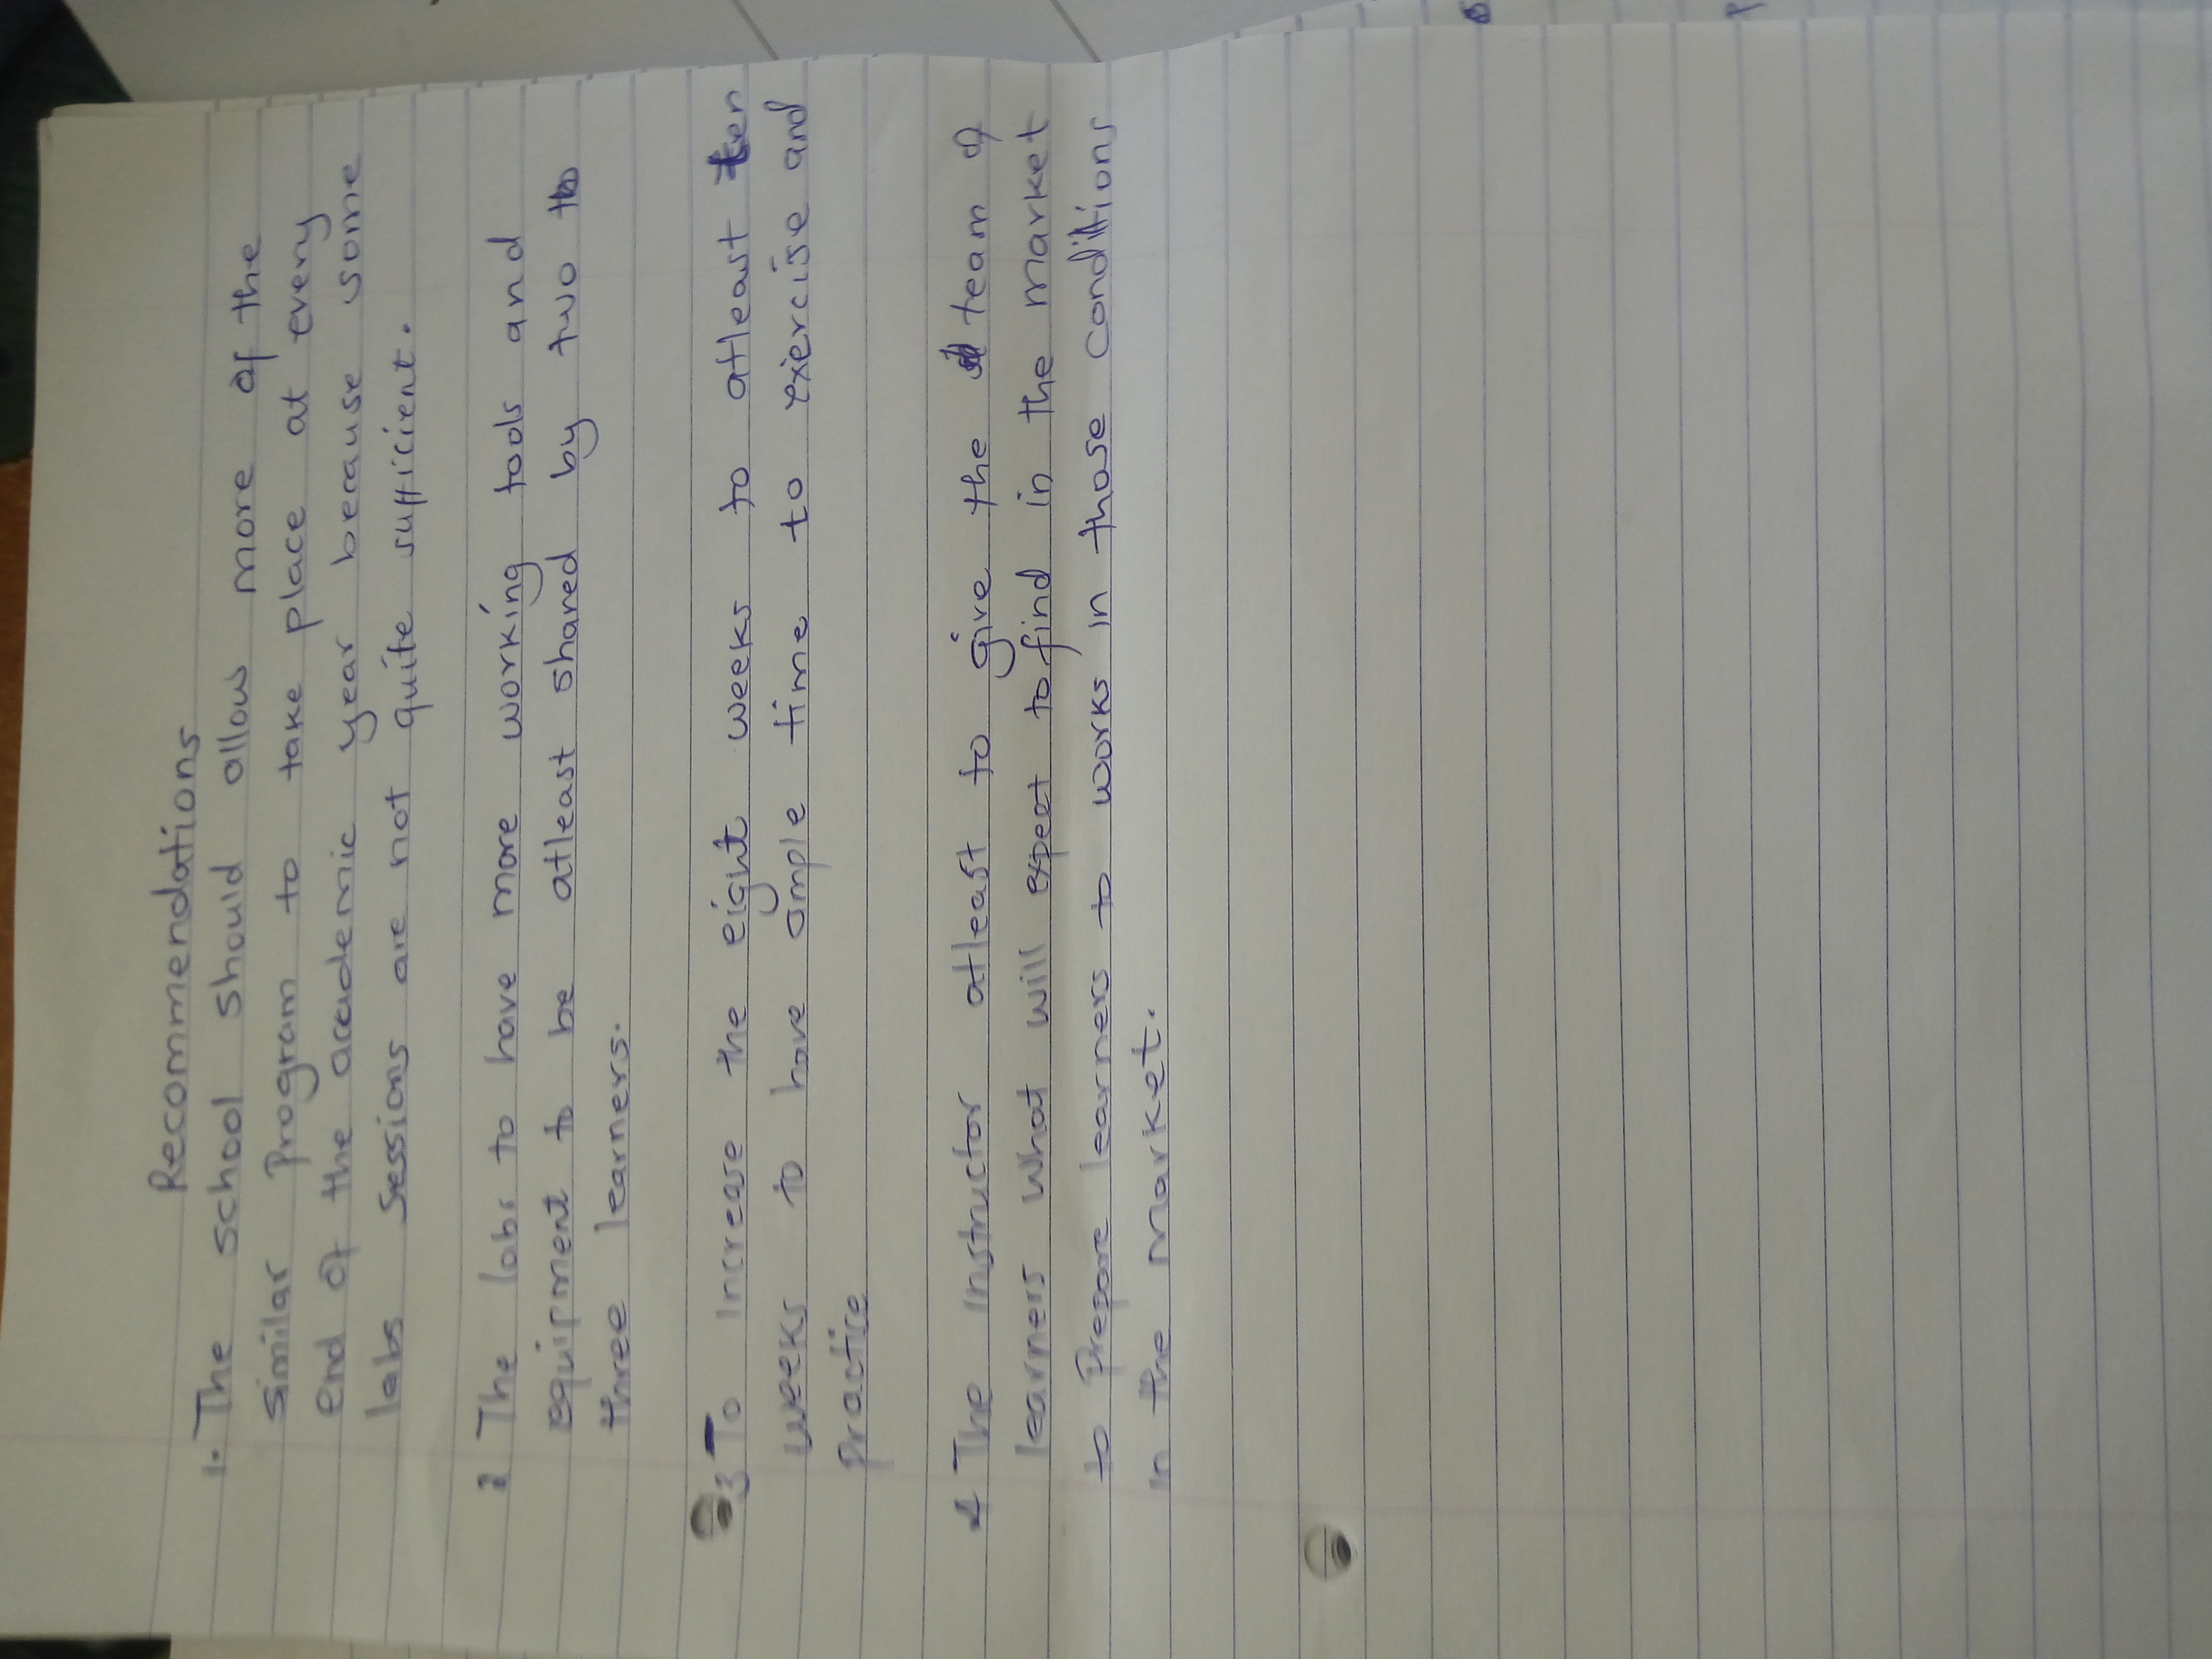 Recommendations
1. The school should allow more of the
similar Program to take place at every
end of the academic year because some
labs sessions are not quite sufficient.
2 The labs to have more working tools and
equipment to be atleast shared by two to
three learners.
3 To increase the eight weeks to atleast ten
weeks to have ample time to exercise and
practice
4 The instructor atleast to give the team of
learners what will expect to find in the market
to Prepare learners to works in those conditions
in the market.